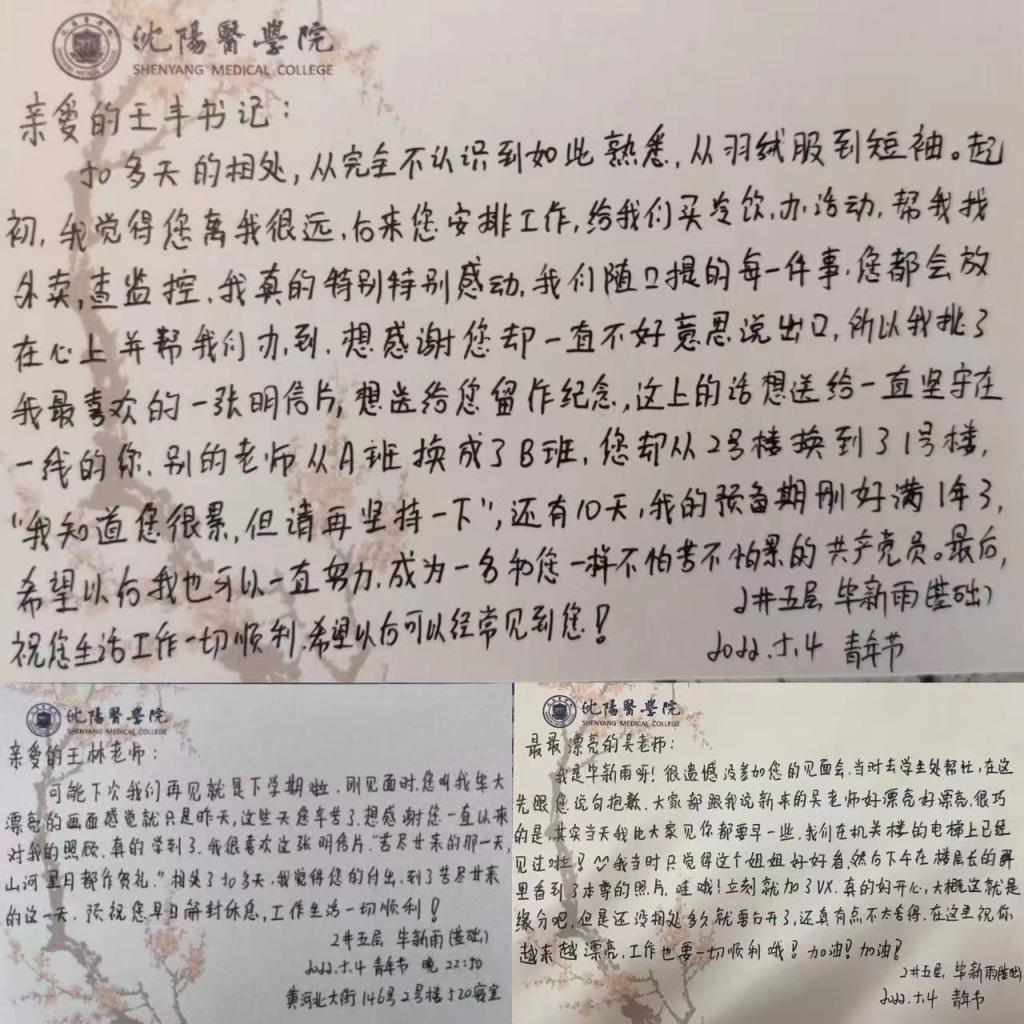 沈陽醫學院
SHENYANG MEDICAL COLLEGE
亲爱的王丰书记：
50多天的相处，从完全不认识到如此熟悉，从羽绒服到短袖。起
初，我觉得您离我很远，后来您安排工作，给我们买冷饮，办活动，帮我找
外卖，查监控，我真的特别特别感动，我们随口提的每一件事，您都会放
在心上并帮我们办到，想感谢您却一直不好意思说出口，所以我挑了
我最喜欢的一张明信片，想送给您留作纪念，这上的话想送给一直坚守在
一线的你，别的老师从A班换成了B班，您却从2号楼换到了1号楼，
“我知道您很累，但请再坚持一下”，还有10天，我的预备期刚好满1年了，
希望以后我也可以一直努力，成为一名和您一样不怕苦不怕累的共产党员。最后，
祝您生活工作一切顺利，希望以后可以经常见到您！
2#五层 毕新雨(基础)
2022.5.4 青年节
沈陽醫學院
SHENYANG MEDICAL COLLEGE
亲爱的王林老师：
可能下次我们再见就是下学期啦，刚见面时，您叫我毕大
漂亮的画面感觉就只是昨天，这些天您辛苦了，想感谢您一直以来
对我的照顾，真的学到了，我很喜欢这张明信片，“苦尽甘来的那一天，
山河星月都作贺礼。”相处了50多天，我觉得您的付出，到了苦尽甘来
的这一天，预祝您早日解封休息，工作生活一切顺利！
2#五层 毕新雨(基础)
2022.5.4 青年节 晚 22:50
黄河北大街146号2号楼520寝室
沈陽醫學院
SHENYANG MEDICAL COLLEGE
最最漂亮的吴老师：
我是毕新雨呀！很遗憾没参加您的见面会，当时去学生处帮忙，在这
先跟您说句抱歉，大家都跟我说新来的吴老师好漂亮好漂亮，很巧
的是，其实当天我比大家见你都要早一些，我们在机关楼的电梯上已经
见过啦！♡我当时只觉得这个姐姐好好看，然后下午在楼层长的群
里看到了本尊的照片，哇哦！立刻就加了VX，真的好开心，大概这就是
缘分吧，但是还没相处多久就要分开了，还真有点不太舍得，在这里祝你
越来越漂亮，工作也要一切顺利哦！加油！加油！
2#五层 毕新雨(基础)
2022.5.4 青年节